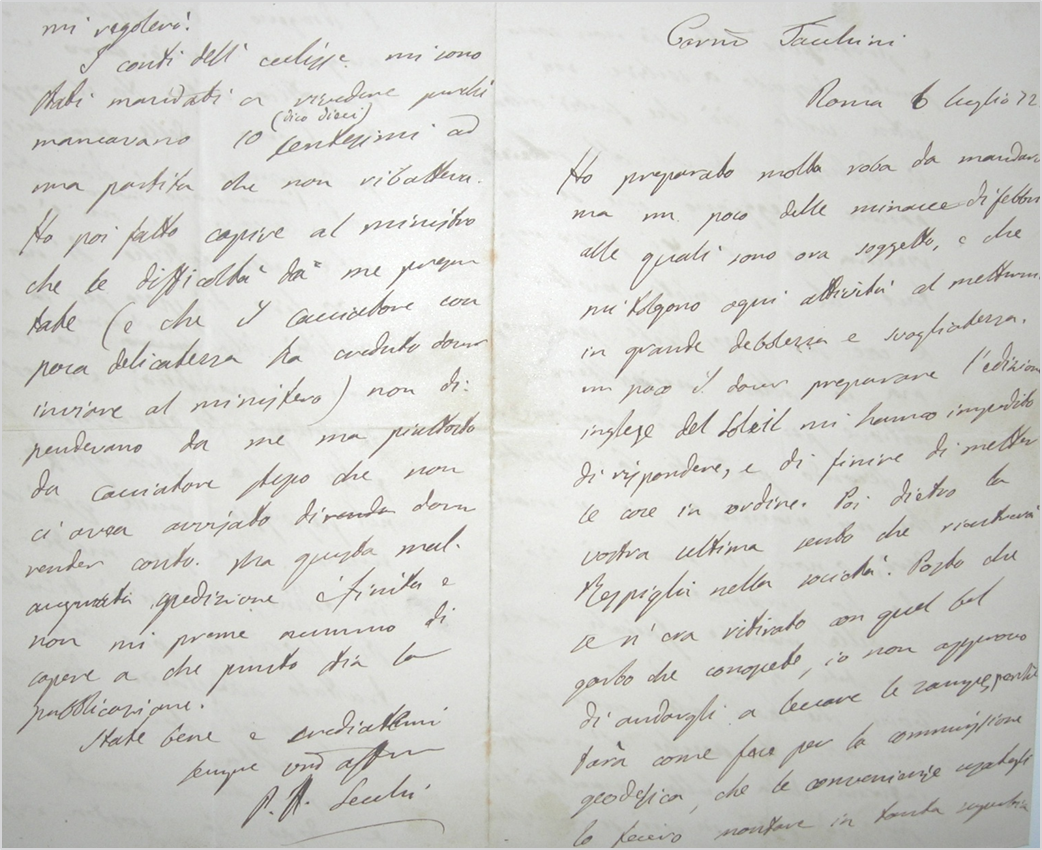 Caro Tacchini
Roma 6 luglio 72
Ho preparato molta roba da mandar
ma un poco delle minacce di febbri
alle quali sono ora soggetto, e che
mi tolgono ogni attività al mettermi
in grande debolezza e svogliatezza,
un poco il dover preparare l'edizion
inglese del Soleil mi hanno impedito
di rispondere, e di finire di metter
le cose in ordine. Poi dietro la
vostra ultima sento che rientrerà
Respighi nella società. Posto che
se n'era ritirato con quel bel
garbo che conoscete, io non approvo
di andargli a leccare le zampe, perchè
farà come fece per la commissione
geodesica, che le convenienze usategli
lo fecero montare in tanta superbia
mi regolerò.
I conti dell'eclisse mi sono
stati mandati a rivedere perchè
mancavano 10 (dico dieci) centesimi ad
una partita che non ribatteva.
Ho poi fatto capire al ministro
che le difficoltà da me presen
tate (e che il Cacciatore con
poca delicatezza ha creduto dover
inviare al ministero) non di-
pendevano da me ma piuttosto
da Cacciatore stesso che non
ci avea avvisato di dover
render conto. Ma questa mal-
augurata spedizione è finita e
non mi preme nemmeno di
sapere a che punto stia la
pubblicazione.
State bene e credetemi
sempre vro affmo
P. A. Secchi